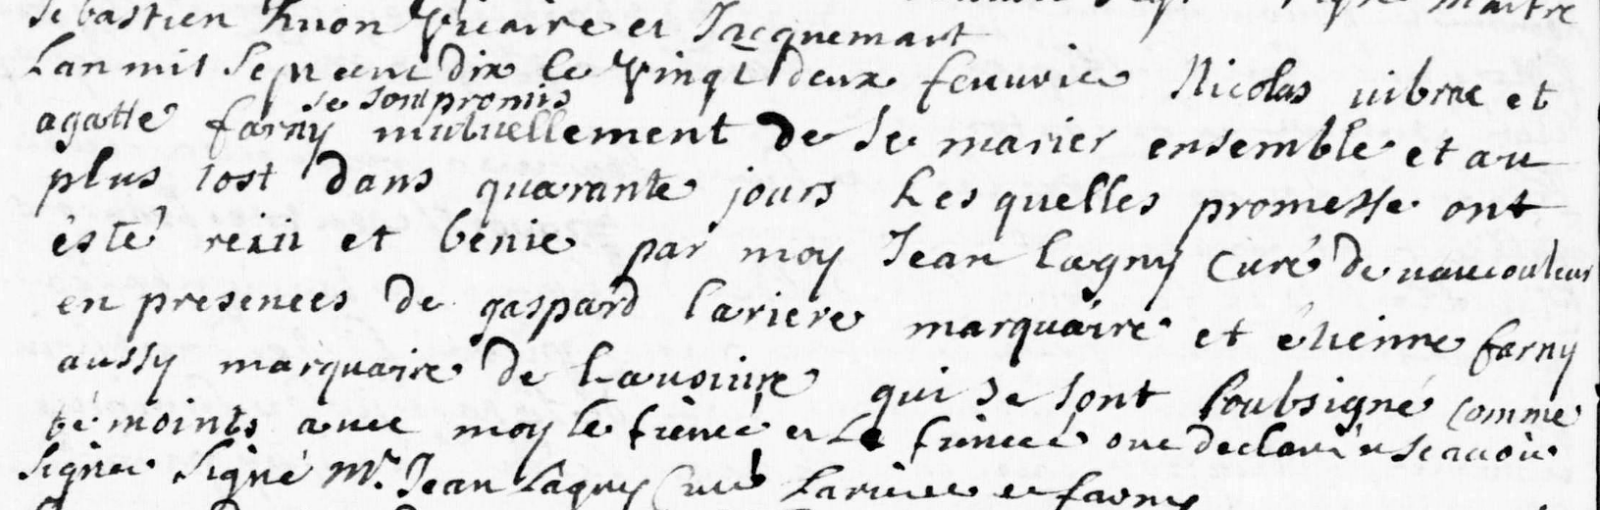 Sebastien Huon Vicaire et Jacquemart
Lan mil Sept cent dix le Vingt deux feuvrie Nicolas vibrac et
se sont promis
agatte farny mutuellement de se marier ensemble et au
plus tost dans quarante jours Les quelles promesse ont
ésté reiiu et benie par moy Jean Lagny Curé de vaucouleur
en presences de gaspard lariere marquaire et étienne farny
aussy marquaire de qui se sont soubsigné comme
témoints avec moy le fiencé et La fiencée ont declaré n sçavoir
Signer Signé Mr. Jean Lagny Curé Lariere et farny